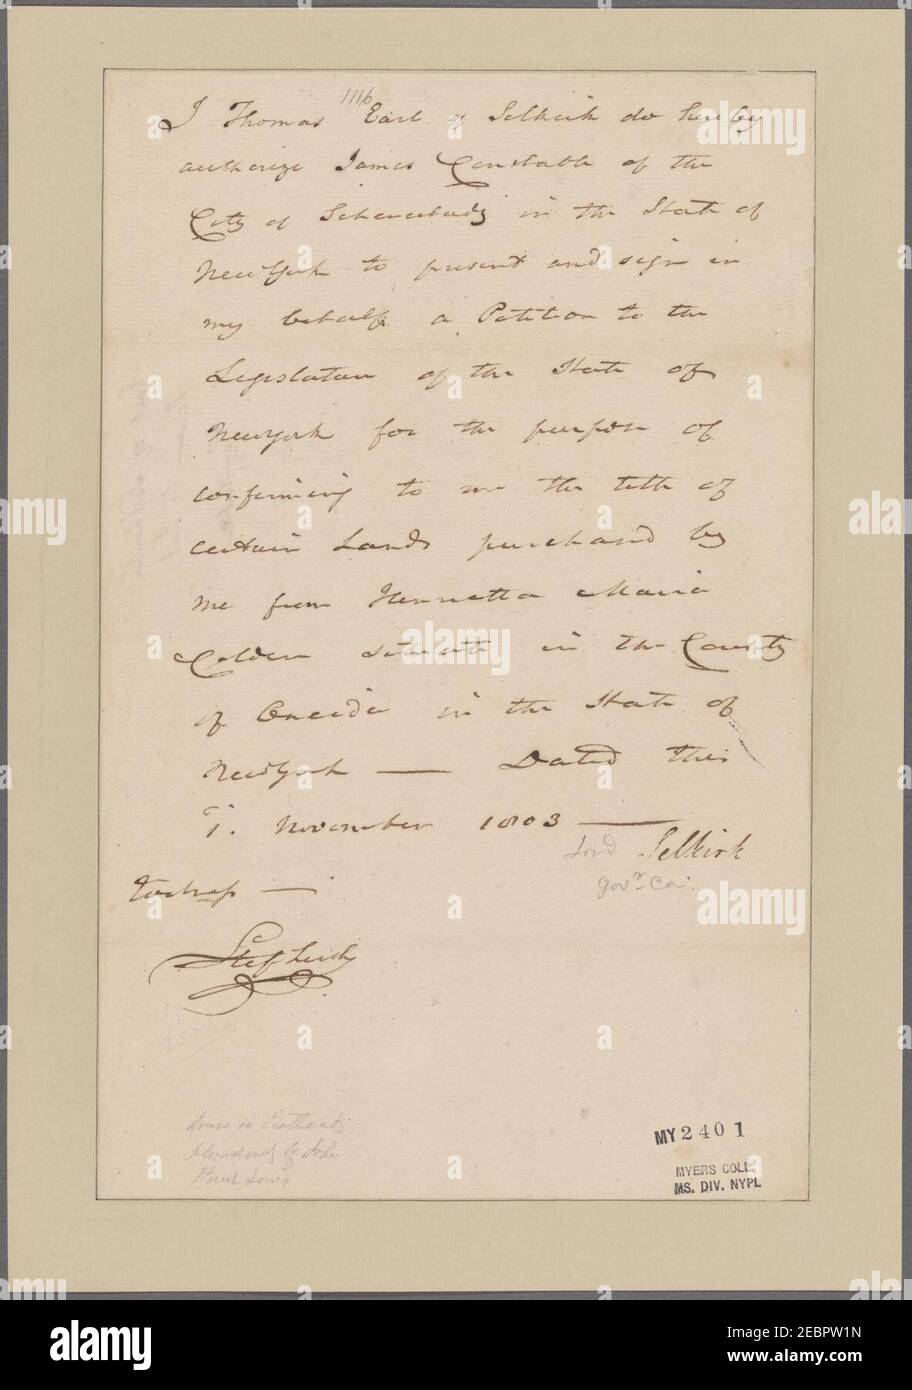 1116
I Thomas Earl of Selkirk do hereby
authorize James Constable of the
City of Schenectady in the State of
NewYork to present and sign in
my behalf a Petition to the
Legislature of the State of
NewYork for the purpose of
confirming to me the title of
certain Lands purchased by
me from Henrietta Maria
Colden situate in the County
of Oneida in the State of
NewYork — Dated this
1. November 1803 —
Lord Selkirk
Gov.r
house in Scotland
plundered by John
Paul Jones
MY 2401
MYERS COLL.
MS. DIV. NYPL
alamy
Image ID: 2EBPW1N
www.alamy.com